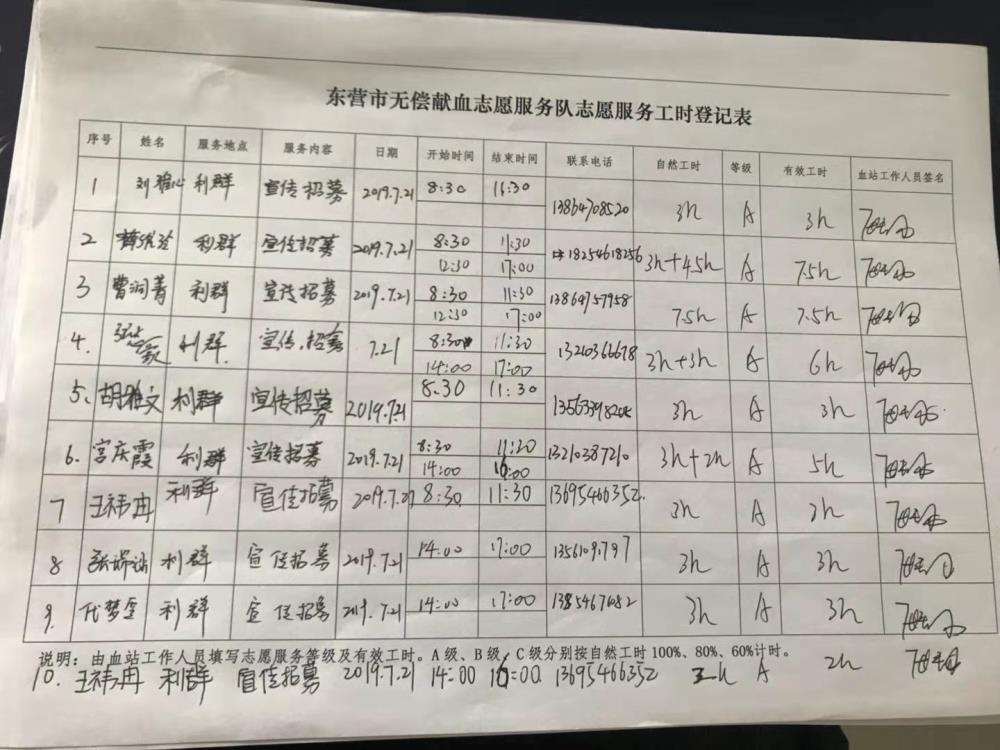 东营市无偿献血志愿服务队志愿服务工时登记表
序号 姓名 服务地点 服务内容 日期 开始时间 结束时间 联系电话 自然工时 等级 有效工时 血站工作人员签名
1 刘雅心 利群 宣传招募 2019.7.21 8:30 11:30 13864708520 3h A 3h
2 利群 宣传招募 2019.7.21 8:30 11:30 18254618256 3h+4.5h A 7.5h
12:30 17:00
3 曹润菁 利群 宣传招募 2019.7.21 8:30 11:30 13864757958 7.5h A 7.5h
12:30 17:00
4. 利群. 宣传.招募 7.21 8:30 11:30 13210366678 3h+3h A 6h
14:00 17:00
5、 胡雅文 利群 宣传招募 2019.7.21 8.30 11:30 3h A 3h
6. 宫庆霞 利群 宣传招募 2019.7.21 8:30 11:30 13210387210 3h+2h A 5h
14:00 16:00
7 王祎冉 利群 宣传招募 2019.7.21 8:30 11:30 13695466352. 3h A 3h
8 利群 宣传招募 2019.7.21 14:00 17:00 3h A 3h
9. 代梦 利群 宣传招募 2019.7.21 14:00 17:00 3h A 3h
说明：由血站工作人员填写志愿服务等级及有效工时。A级、B级、C级分别按自然工时100%、80%、60%计时。
10. 王祎冉 利群 宣传招募 2019.7.21 14:00 16:00 13695466352 2h A 2h